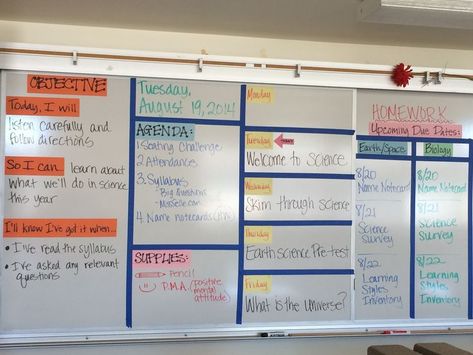 OBJECTIVE
Today, I will
listen carefully and
follow directions
So I can learn about
what we'll do in science
this year
I'll know I've got it when...
• I've read the syllabus
• I've asked any relevant
questions
Tuesday,
August 19, 2014
AGENDA:
1 Seating Challenge
2 Attendance
3. Syllabus
- Big Questions
4 Name notecards
SUPPLIES:
pencil
P.M.A. (positive
mental
attitude)
Monday
Tuesday
Welcome to Science
Wednesday
Skim through Science
Thursday
Earth Science Pre-test
Friday
What is the Universe?
HOMEWORK
Upcoming Due Dates:
Earth/Space
8/20
Name Notecard
8/21
Science
Survey
8/22
Learning
Styles
Inventory
Biology
8/20
Name Notecard
8/21
Science
Survey
8/22
Learning
Styles
Inventory